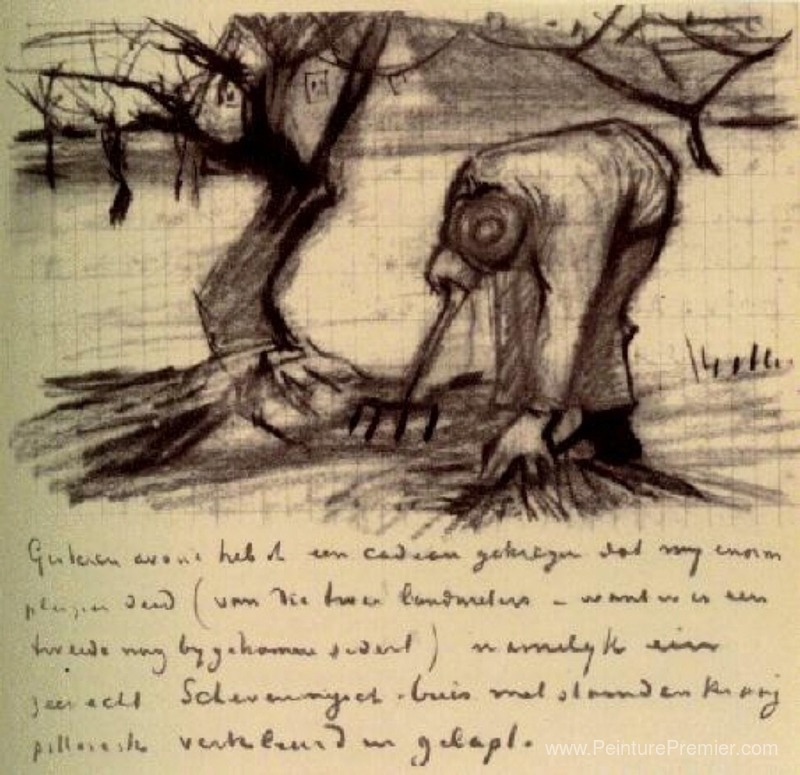 Gisteren avond heb ik een cadeau gekregen dat my enorm
pleizier deed (van die twee landmeters – want er is een
tweede nog bygekomen sedert) namelyk een
zeer echt Scheveningsch buis met staanden kraag
pittoresk verkleurd en gelapt.
www.PeinturePremier.com